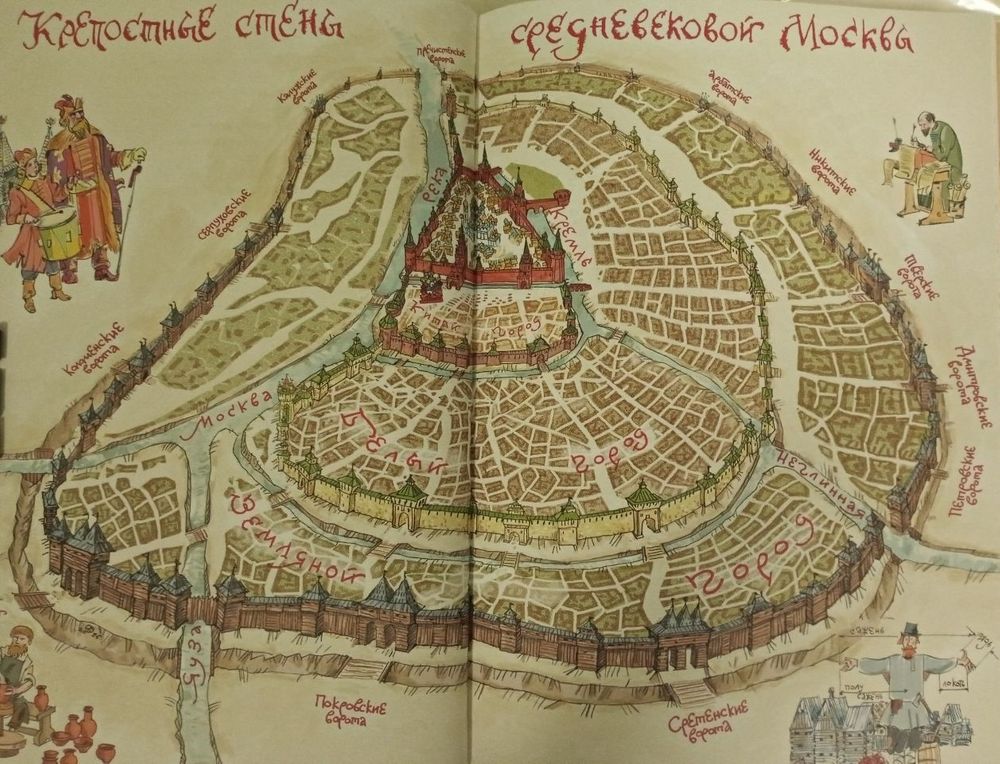 Крепостные стены средневековой Москвы
Пречистенские
ворота
Калужские
ворота
Арбатские
ворота
Никитские
ворота
Серпуховские
ворота
река
Кремль
Тверские
ворота
Китай город
Коломенские
ворота
Дмитровские
ворота
Москва
Белый город
Петровские
ворота
Неглинная
Земляной город
Яуза
Покровские
ворота
Сретенские
ворота
сажень
полу
сажень
локоть